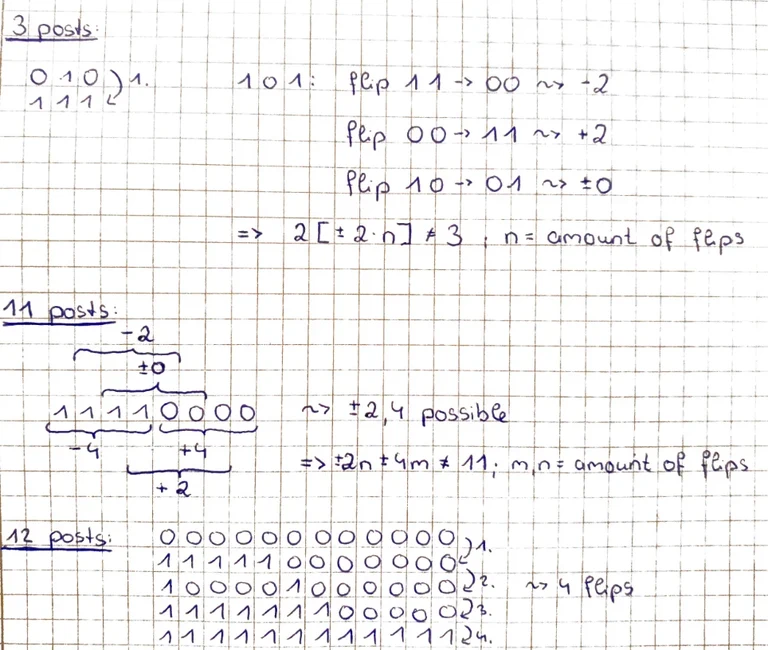 3 posts:
0 1 0 ) 1.
1 1 1
1 0 1 : flip 1 1 -> 00 ~> -2
flip 00 -> 11 ~> +2
flip 10 -> 01 ~> ±0
=> 2 [± 2·n] ≠ 3 , n = amount of flips
11 posts:
-2
±0
1 1 1 1 0 0 0 0 ~> ±2,4 possible
-4 +4
=> ±2n ± 4m ≠ 11; m,n = amount of flips
+2
12 posts:
0 0 0 0 0 0 0 0 0 0 0 0 ) 1.
1 1 1 1 1 0 0 0 0 0 0 0
1 0 0 0 0 1 0 0 0 0 0 0 ) 2. ~> 4 flips
1 1 1 1 1 1 1 0 0 0 0 0 ) 3.
1 1 1 1 1 1 1 1 1 1 1 1 ) 4.